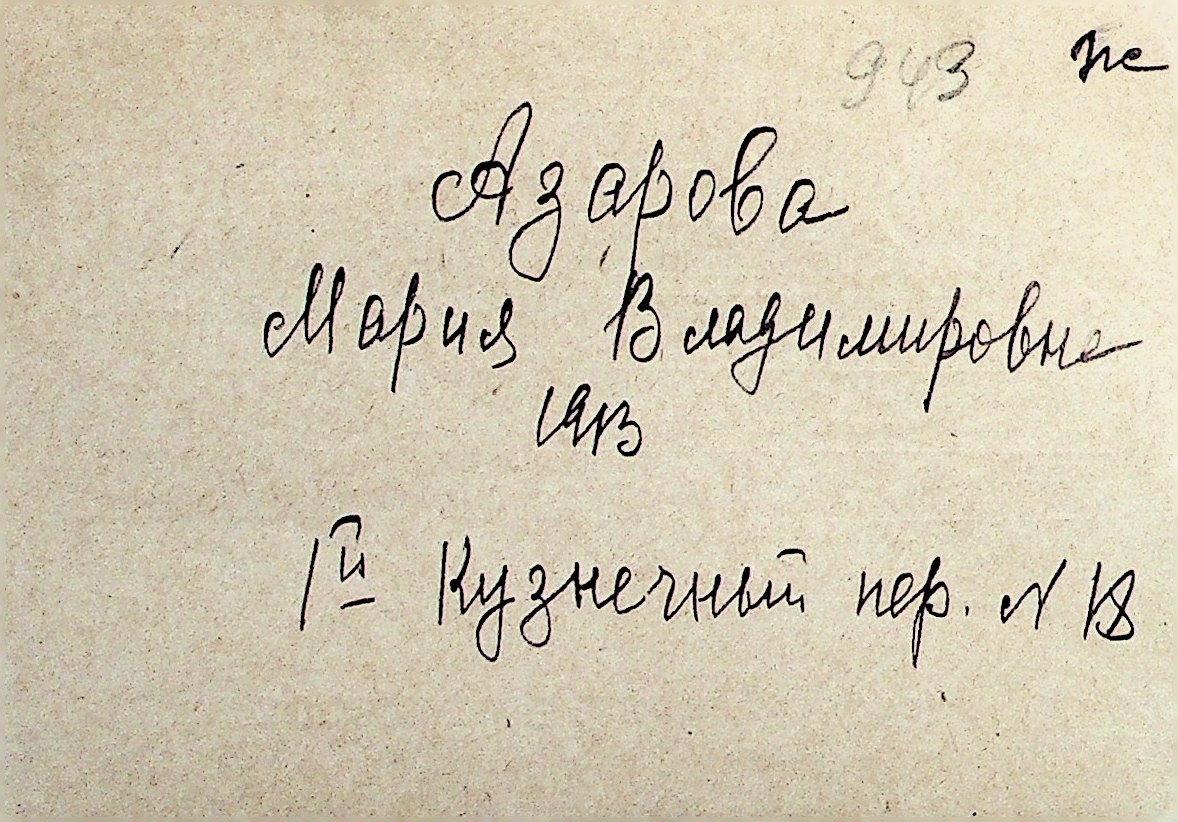 943 же
Азарова
Мария Владимировна
1913
1й Кузнечный пер. N 18